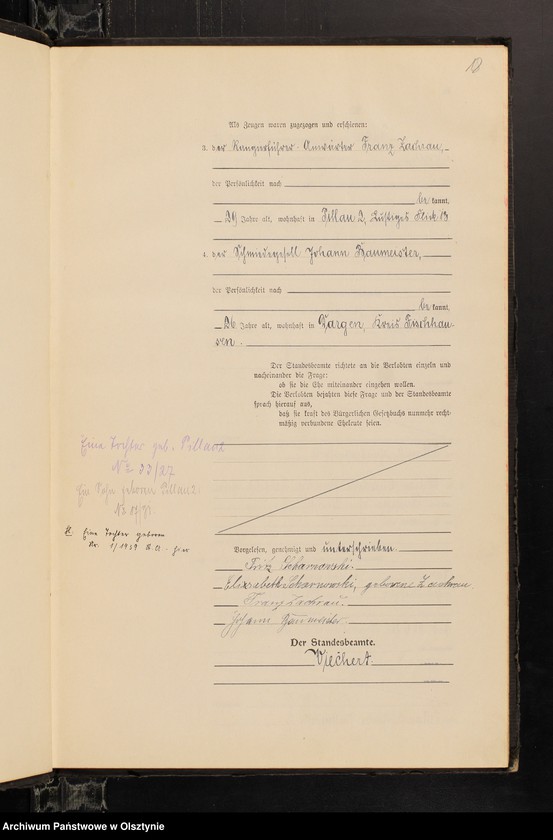 18
Als Zeugen waren zugezogen und erschienen:
3. der Rangierführer-Anwärter Franz Zachrau,
der Persönlichkeit nach
be kannt,
29 Jahre alt, wohnhaft in Pillau 2, Lustiges Fließ 13
4. der Schmiedegesell Johann Baumeister,
der Persönlichkeit nach
be kannt,
26 Jahre alt, wohnhaft in Gargen, Kreis Fischhau-
sen.
Der Standesbeamte richtete an die Verlobten einzeln und
nacheinander die Frage:
ob sie die Ehe miteinander eingehen wollen.
Die Verlobten bejahten diese Frage und der Standesbeamte
sprach hierauf aus,
daß sie kraft des Bürgerlichen Gesetzbuchs nunmehr recht-
mäßig verbundene Eheleute seien.
Eine Tochter geb. Pillau
Nr 33/27
Ein Sohn geboren Pillau 2.
Nr 17/31
Eine Tochter geboren
Nr. 1/1939 St. A. hier
Vorgelesen, genehmigt und unterschrieben
Fritz Scharnowski.
Elisabeth Scharnowski, geborene Zachrau
Franz Zachrau.
Johann Baumeister
Der Standesbeamte.
Wiechert.
Archiwum Państwowe w Olsztynie